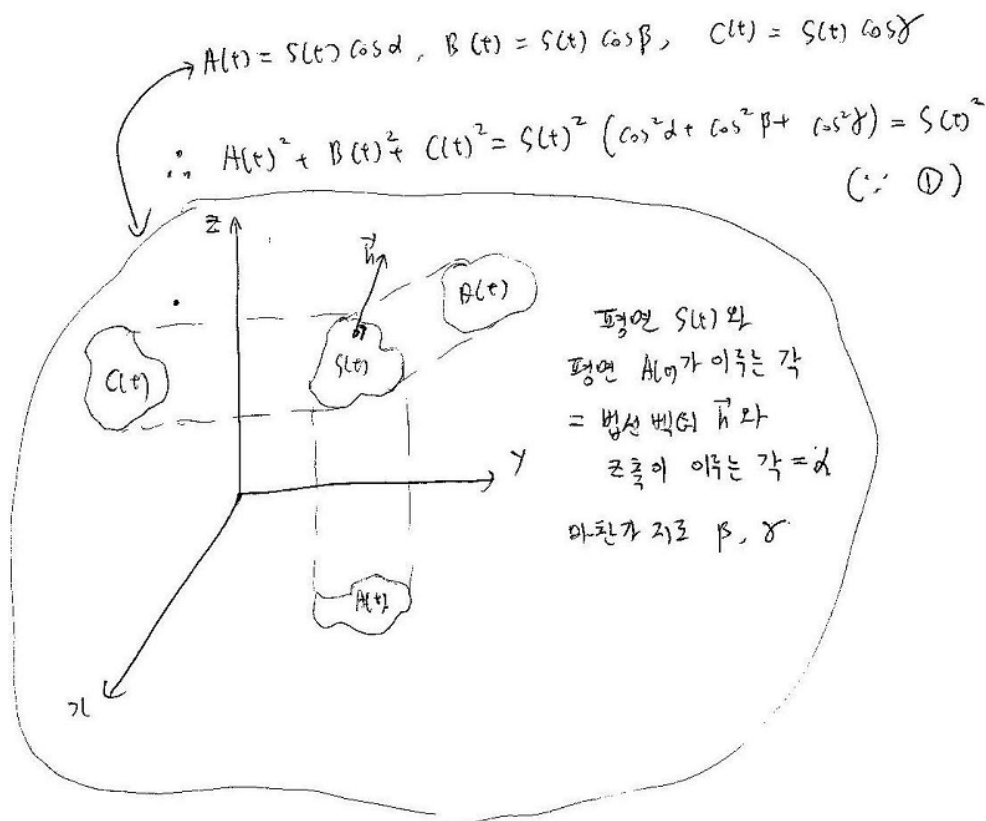 A(t) = S(t) cosα, B(t) = S(t) cosβ, C(t) = S(t) cosγ
∴ A(t)² + B(t)² + C(t)² = S(t)² (cos²α + cos²β + cos²γ) = S(t)²
(∵ ①)
z
n⃗
B(t)
C(t)
S(t)
평면 S(t)와
평면 A(t)가 이루는 각
= 법선벡터 n⃗와
z축이 이루는 각 = α
마찬가지로 β, γ
y
A(t)
x